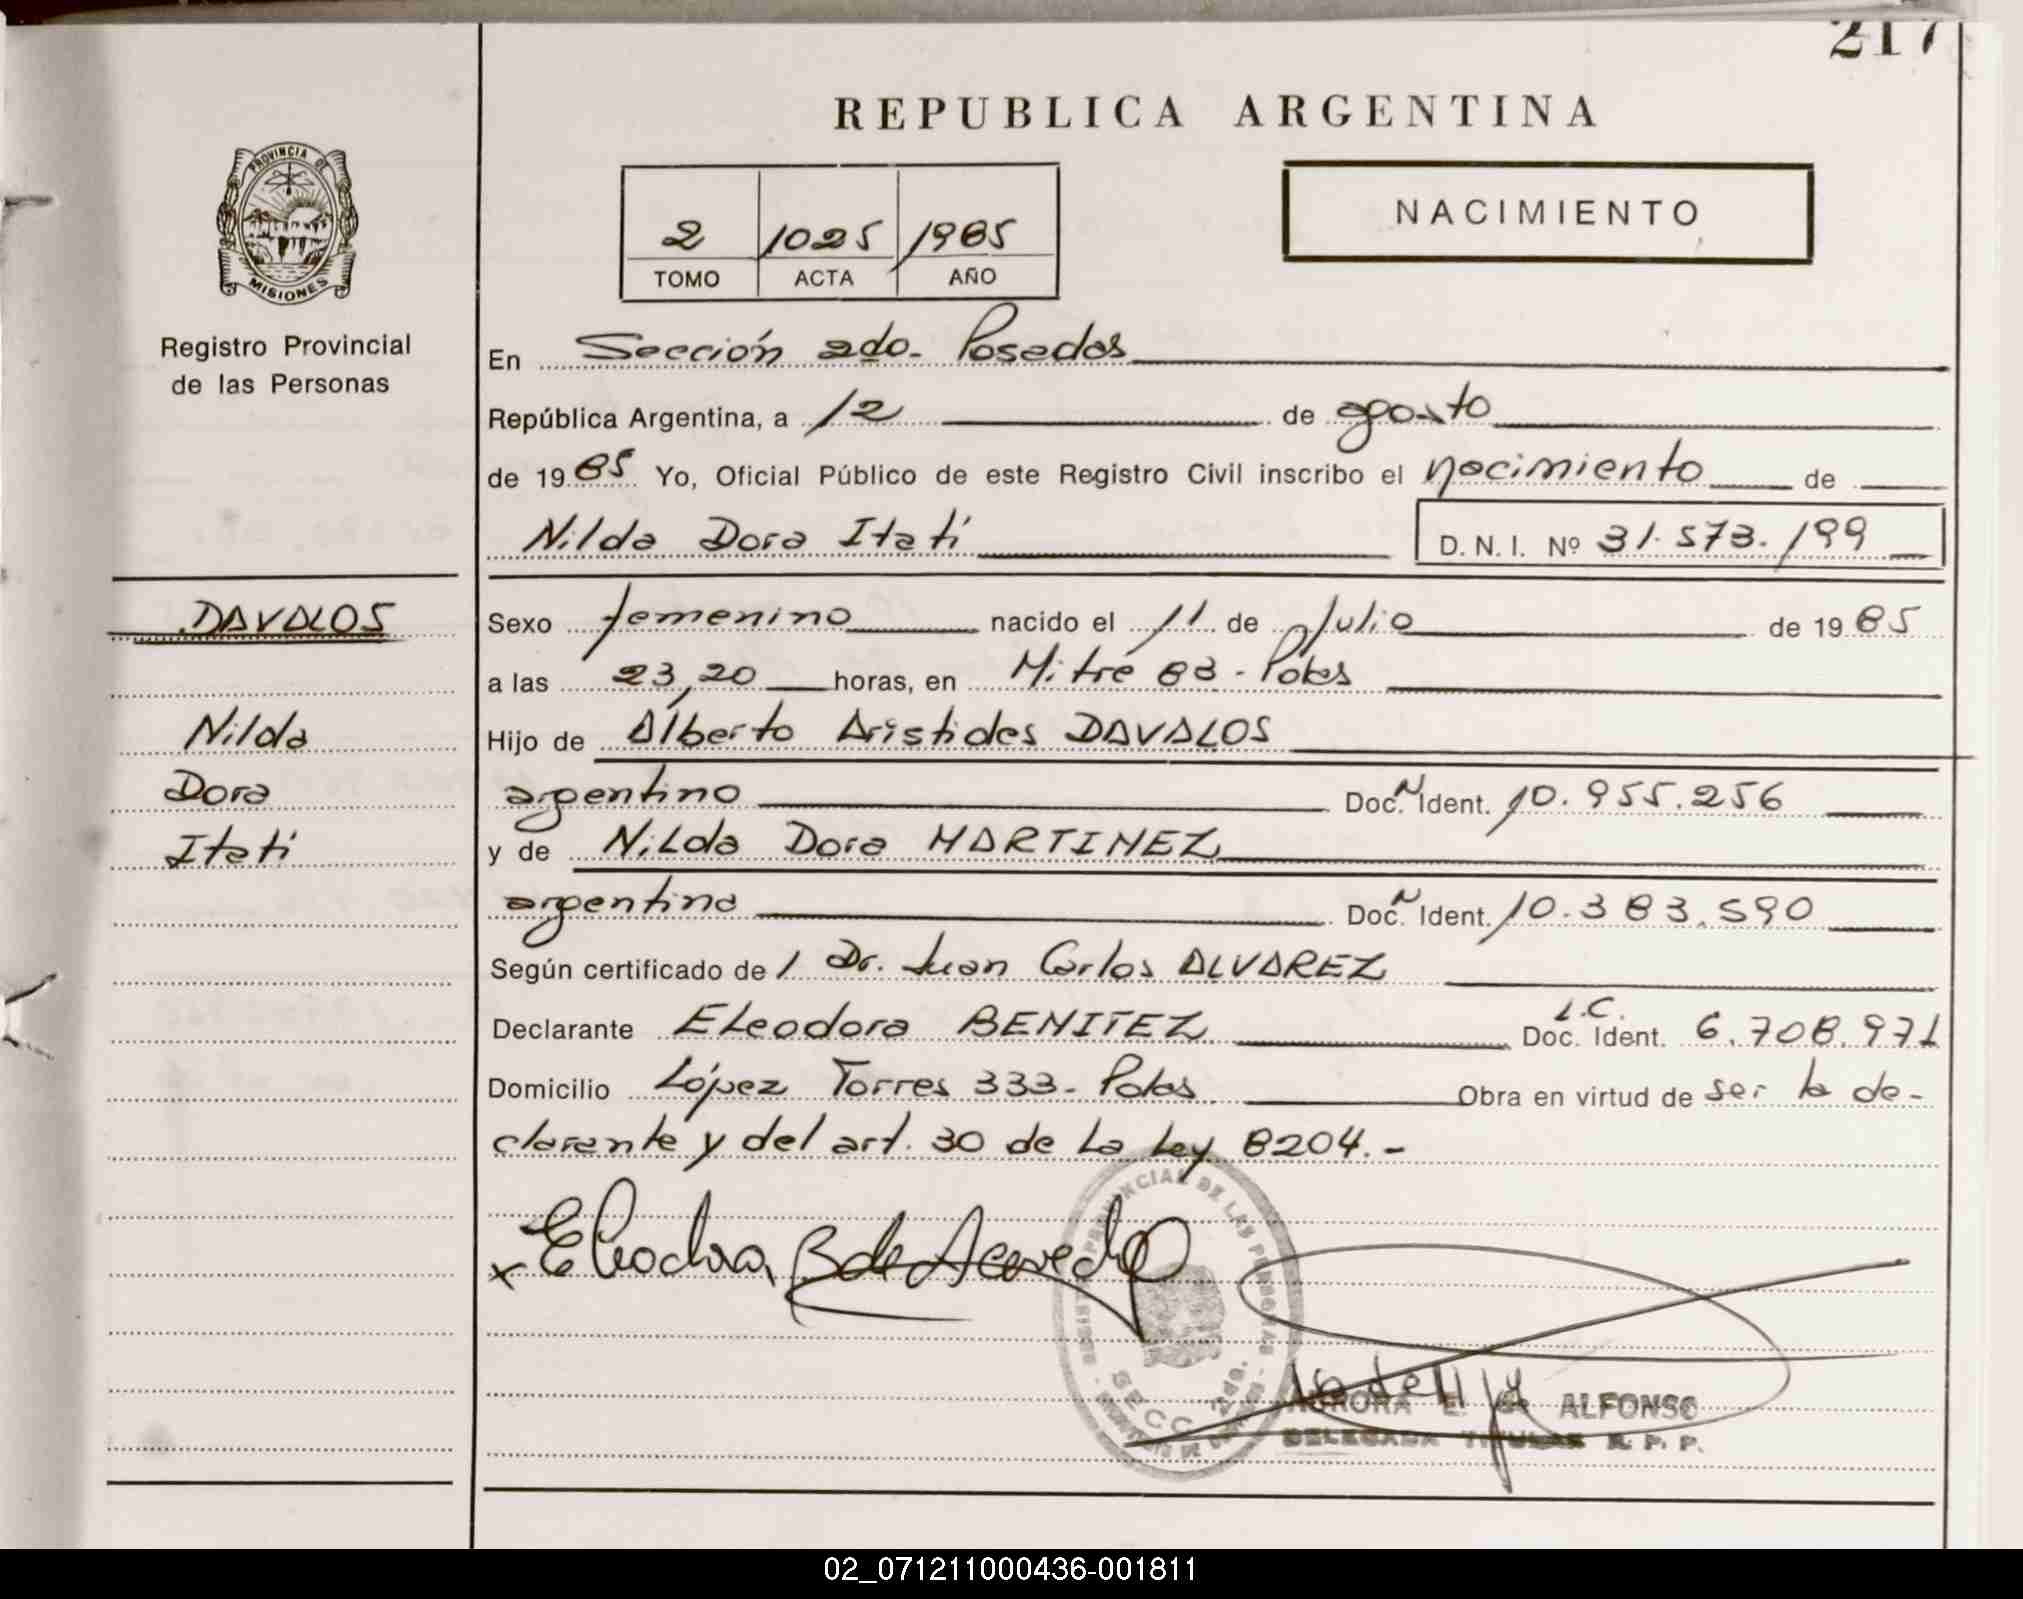 217
REPUBLICA ARGENTINA
PROVINCIA DE
MISIONES
Registro Provincial
de las Personas
2 1025 1985
TOMO ACTA AÑO
NACIMIENTO
En Sección 2da. Posadas
República Argentina, a 12 de agosto
de 1985 Yo, Oficial Público de este Registro Civil inscribo el nacimiento de
Nilda Dora Itatí D. N. I. Nº 31.573.199
DAVALOS
Nilda
Dora
Itatí
Sexo femenino nacido el 11 de Julio de 1985
a las 23,20 horas, en Mitre 83 - Pdas
Hijo de Alberto Aristides DAVALOS
argentino Doc. N. Ident. 10.955.256
y de Nilda Dora MARTINEZ
argentina Doc. N. Ident. 10.383.590
Según certificado de l Dr. Juan Carlos ALVAREZ
Declarante Eleodora BENITEZ L.C. Doc. Ident. 6.708.971
Domicilio López Torres 333 - Pdas Obra en virtud de ser la de-
clarante y del art. 30 de la Ley 8204.-
x Eleodora B de Acevedo
SECC. 2da.
AURORA E. de ALFONSO
DELEGADA TITULAR R. P. P.
02_071211000436-001811